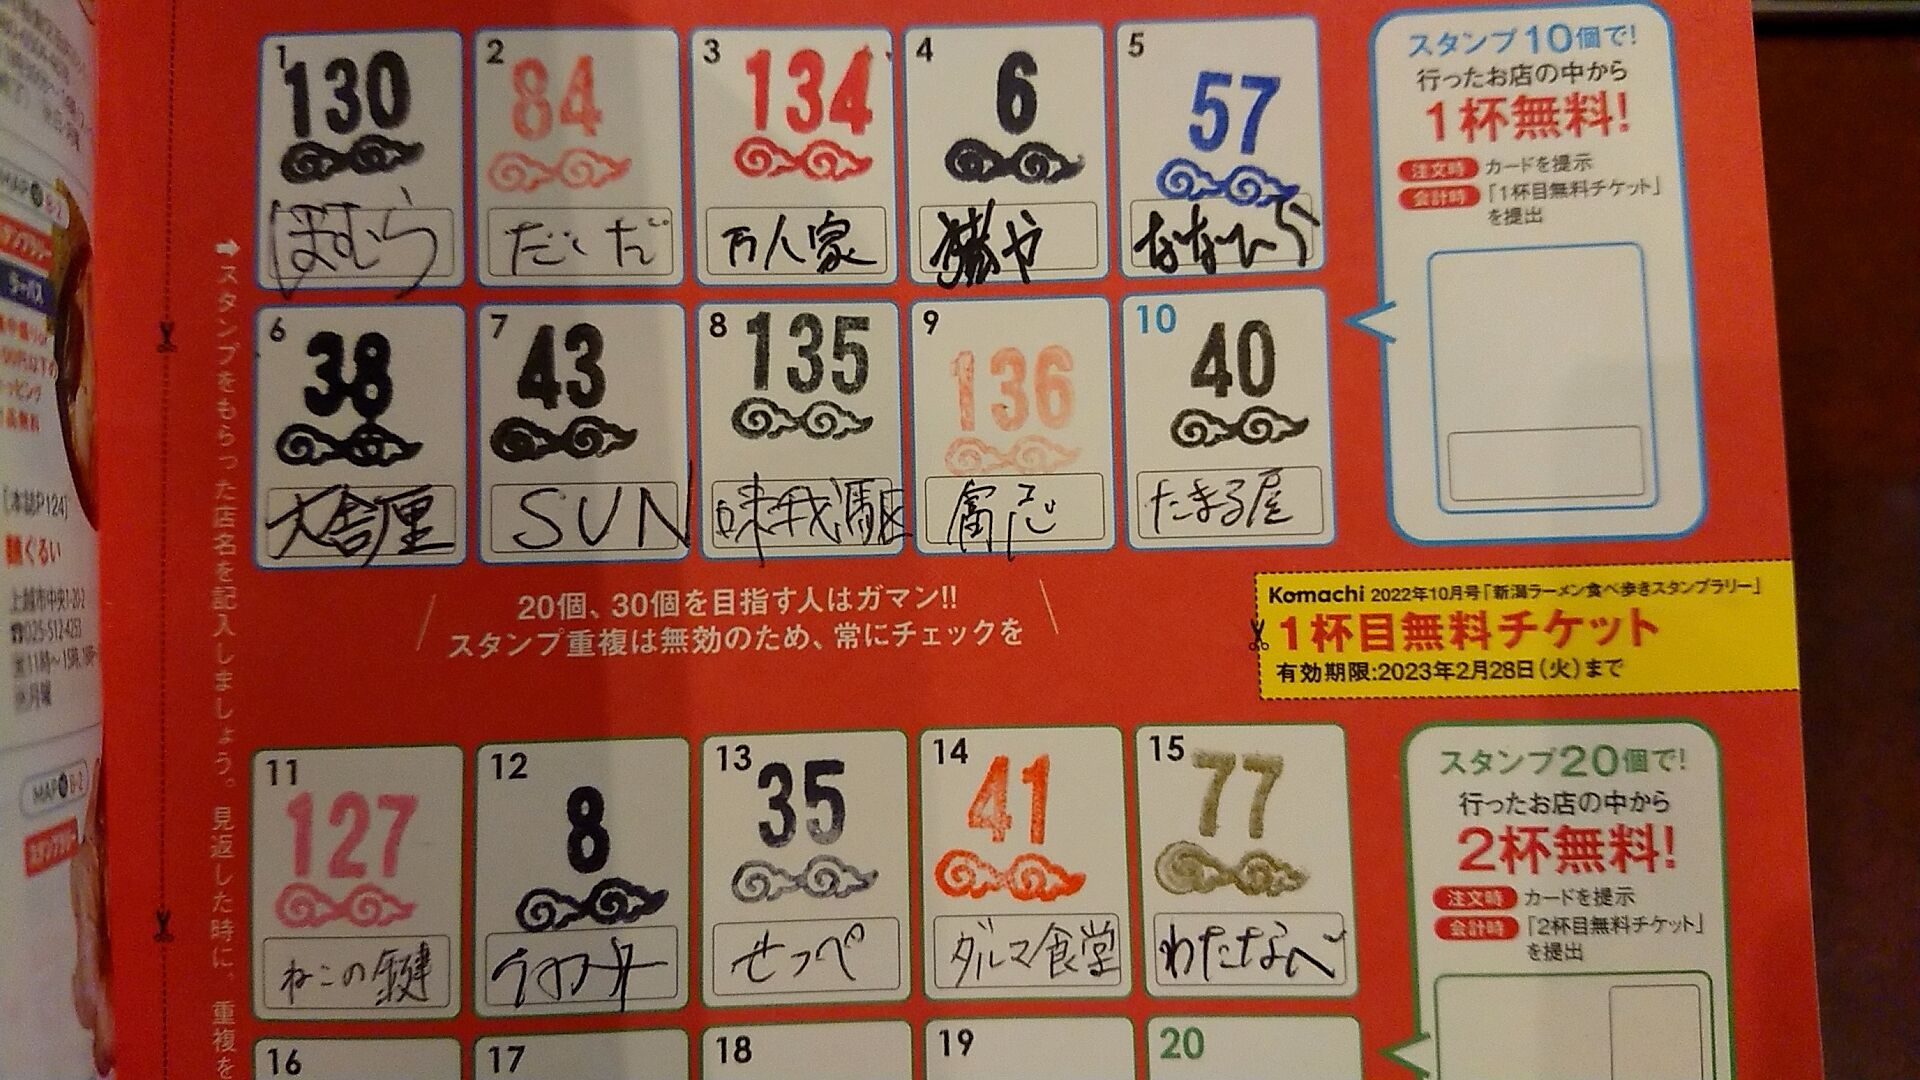 1
130
ほむら
2
84
だいだ
3
134
万人家
4
6
猪や
5
57
スタンプ10個で!
行ったお店の中から
1杯無料!
注文時 カードを提示
会計時 「1杯目無料チケット」
を提出
6
38
大舎厘
7
43
SUN
8
135
味我駆
9
136
10
40
たまる屋
➡スタンプをもらった店名を記入しましょう。見返した時に、重複を
20個、30個を目指す人はガマン!!
スタンプ重複は無効のため、常にチェックを
Komachi 2022年10月号「新潟ラーメン食べ歩きスタンプラリー」
1杯目無料チケット
有効期限:2023年2月28日(火)まで
11
127
ねこの鍵
12
8
13
35
せっぺ
14
41
ダルマ食堂
15
77
わたなべ
スタンプ20個で!
行ったお店の中から
2杯無料!
注文時 カードを提示
会計時 「2杯目無料チケット」
を提出
16
17
18
19
20
[本誌P124]
麺ぐるい
上越市中央1-20-2
☎025-512-4253
月曜
MAP